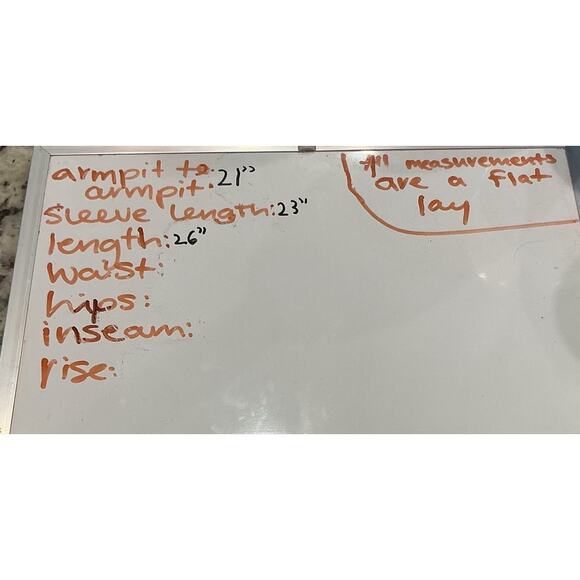 armpit to
armpit: 21"
sleeve length: 23"
length: 26"
waist:
hips:
inseam:
rise:
*All measurements
are a flat
lay